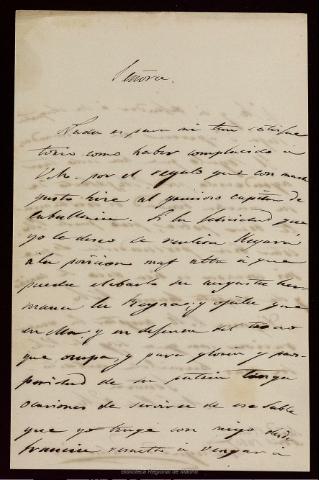 Señora.
Nada es para mi tan satisfac
torio como haber complacido a
V.M. por el regalo que con mucho
gusto hice al primoroso capitan de
caballeria. Si la felicidad que
yo le deseo se realiza llegara
a la posicion mas alta á que
puede elevarlo su augusta her
mana la Reyna; y ojalá que
en Mar, y en defensa del trono
que ocupa, y para gloria y pros
peridad de su patria tenga
ocasiones de servirse de ese sable
que yo traje con migo
Francia á vengar á
Biblioteca Regional de Madrid